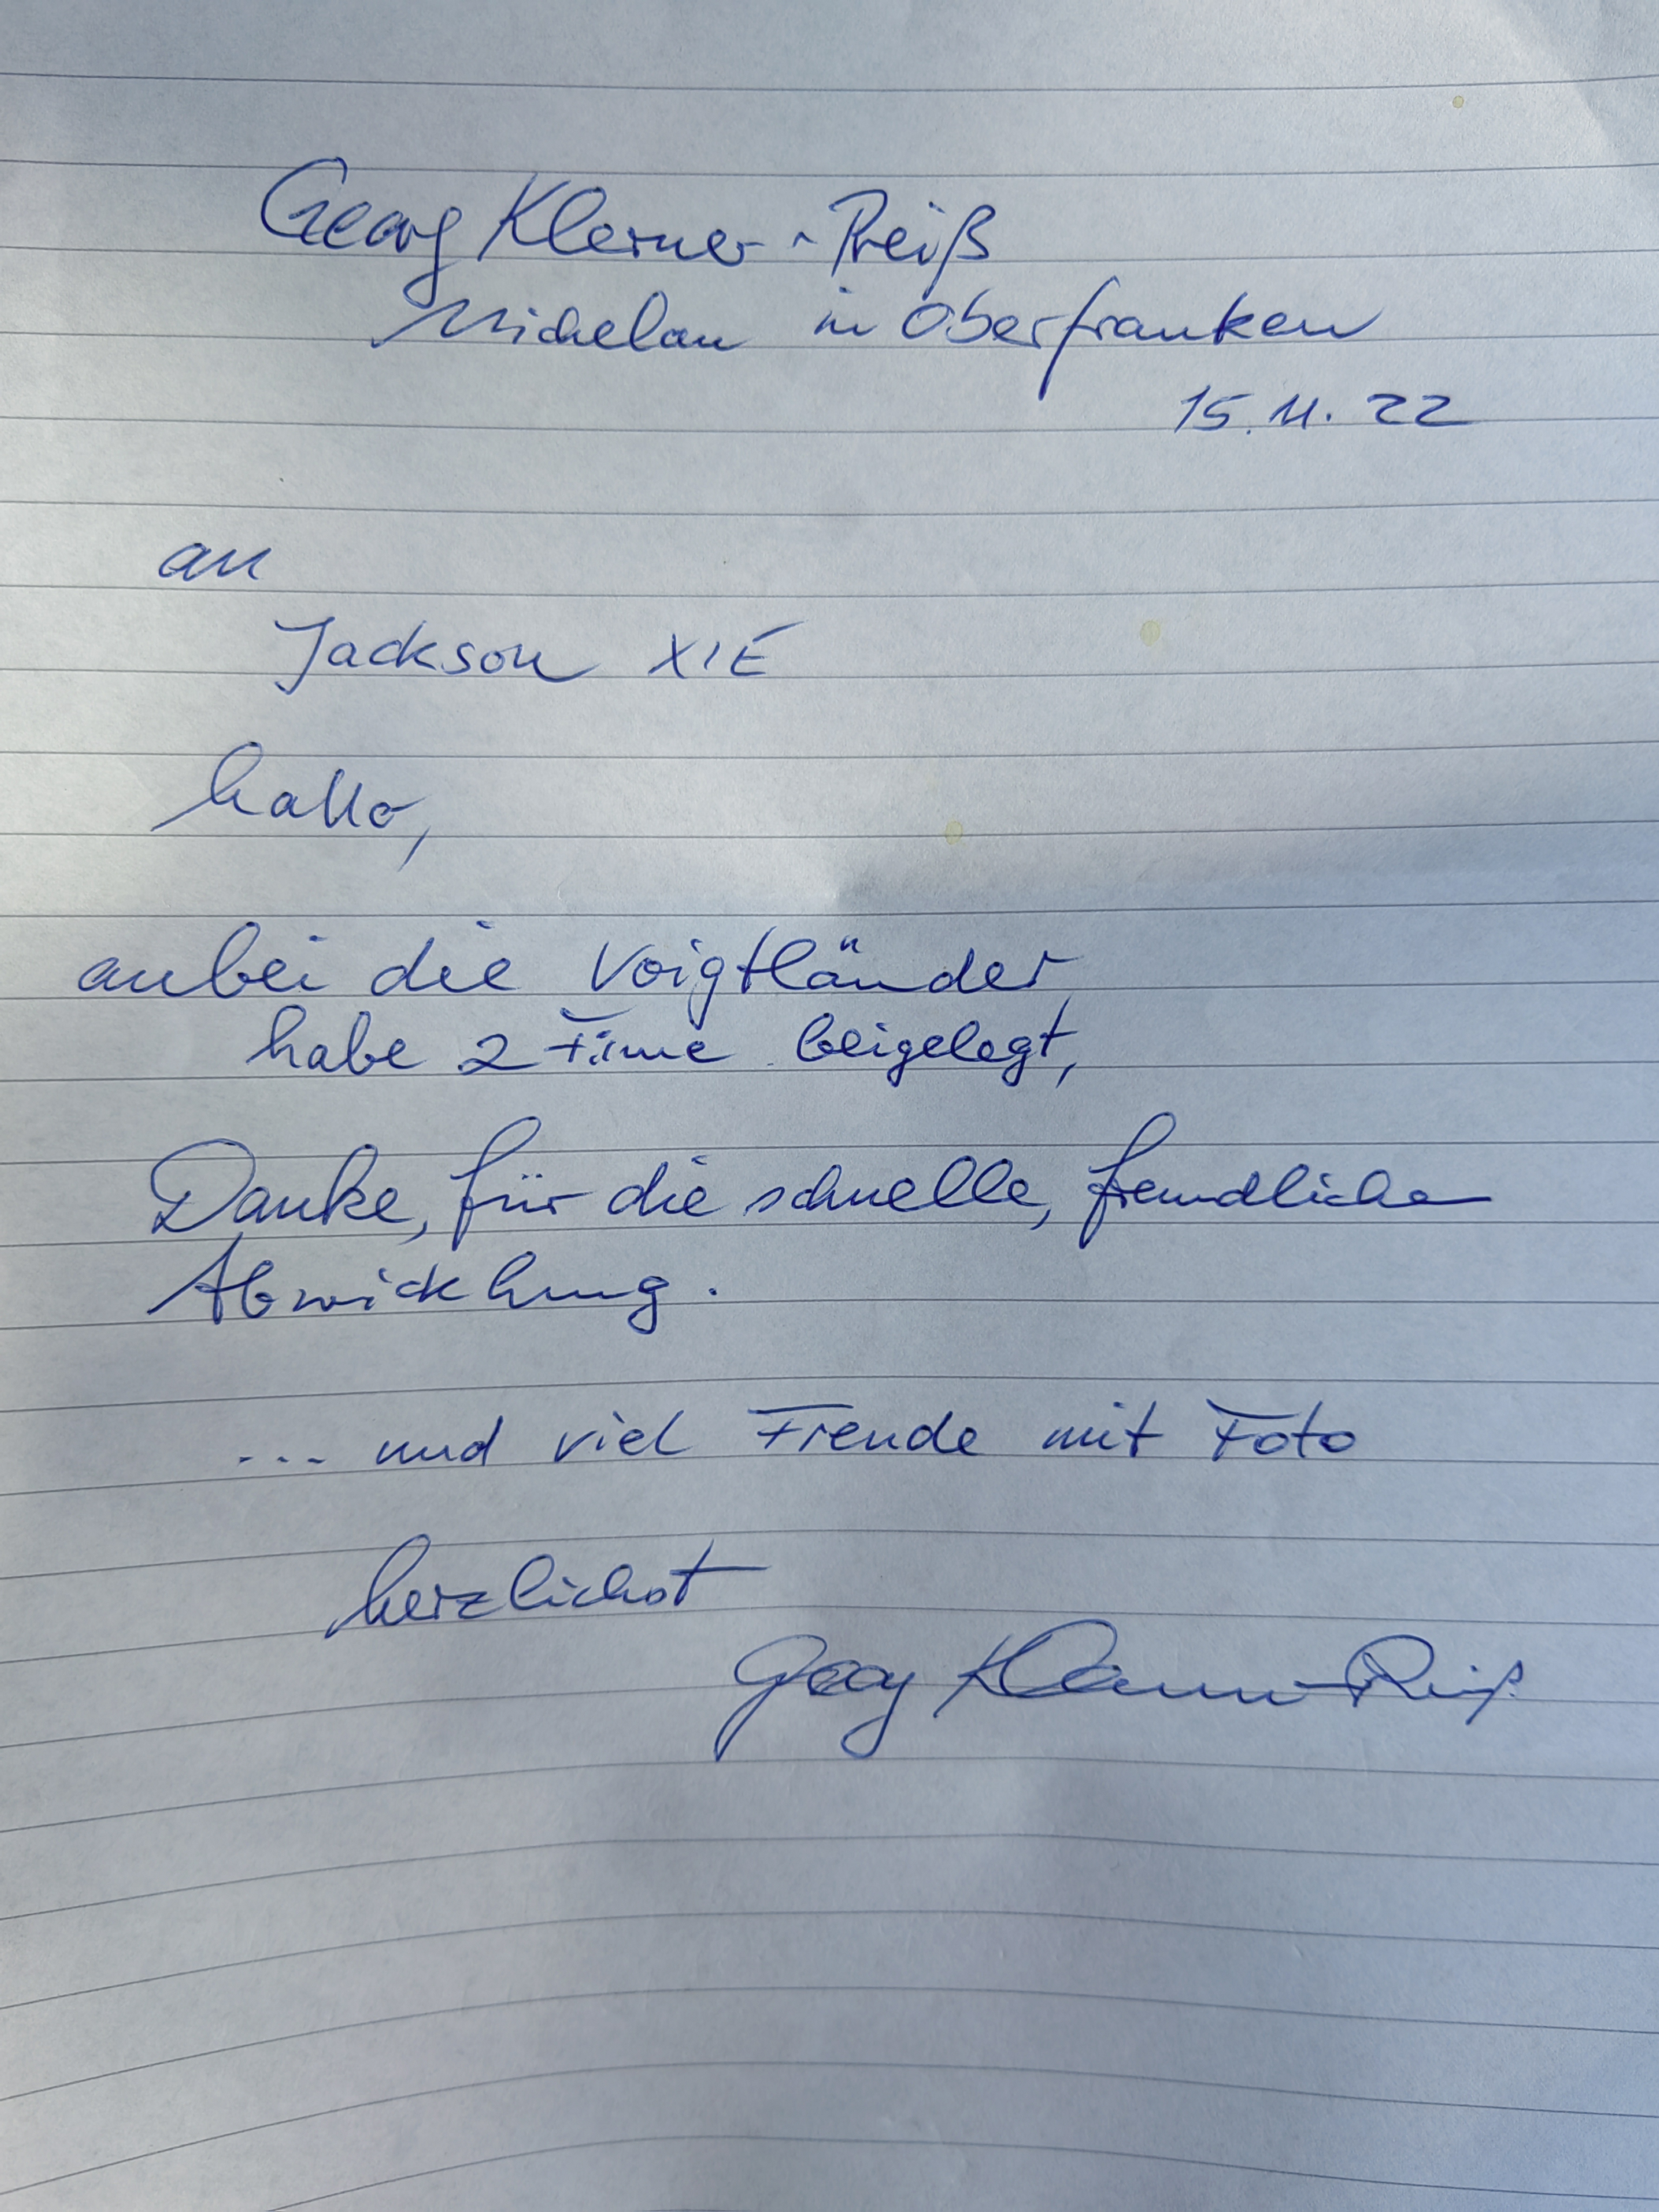 Georg Klerner-Reiß
Michelau in Oberfranken
15.11.22
an
Jackson XIE
hallo,
anbei die Voigtländer,
habe 2 Filme beigelegt,
Danke, für die schnelle, freundliche
Abwicklung.
... und viel Freude mit Foto
herzlichst
Georg Klerner-Reiß